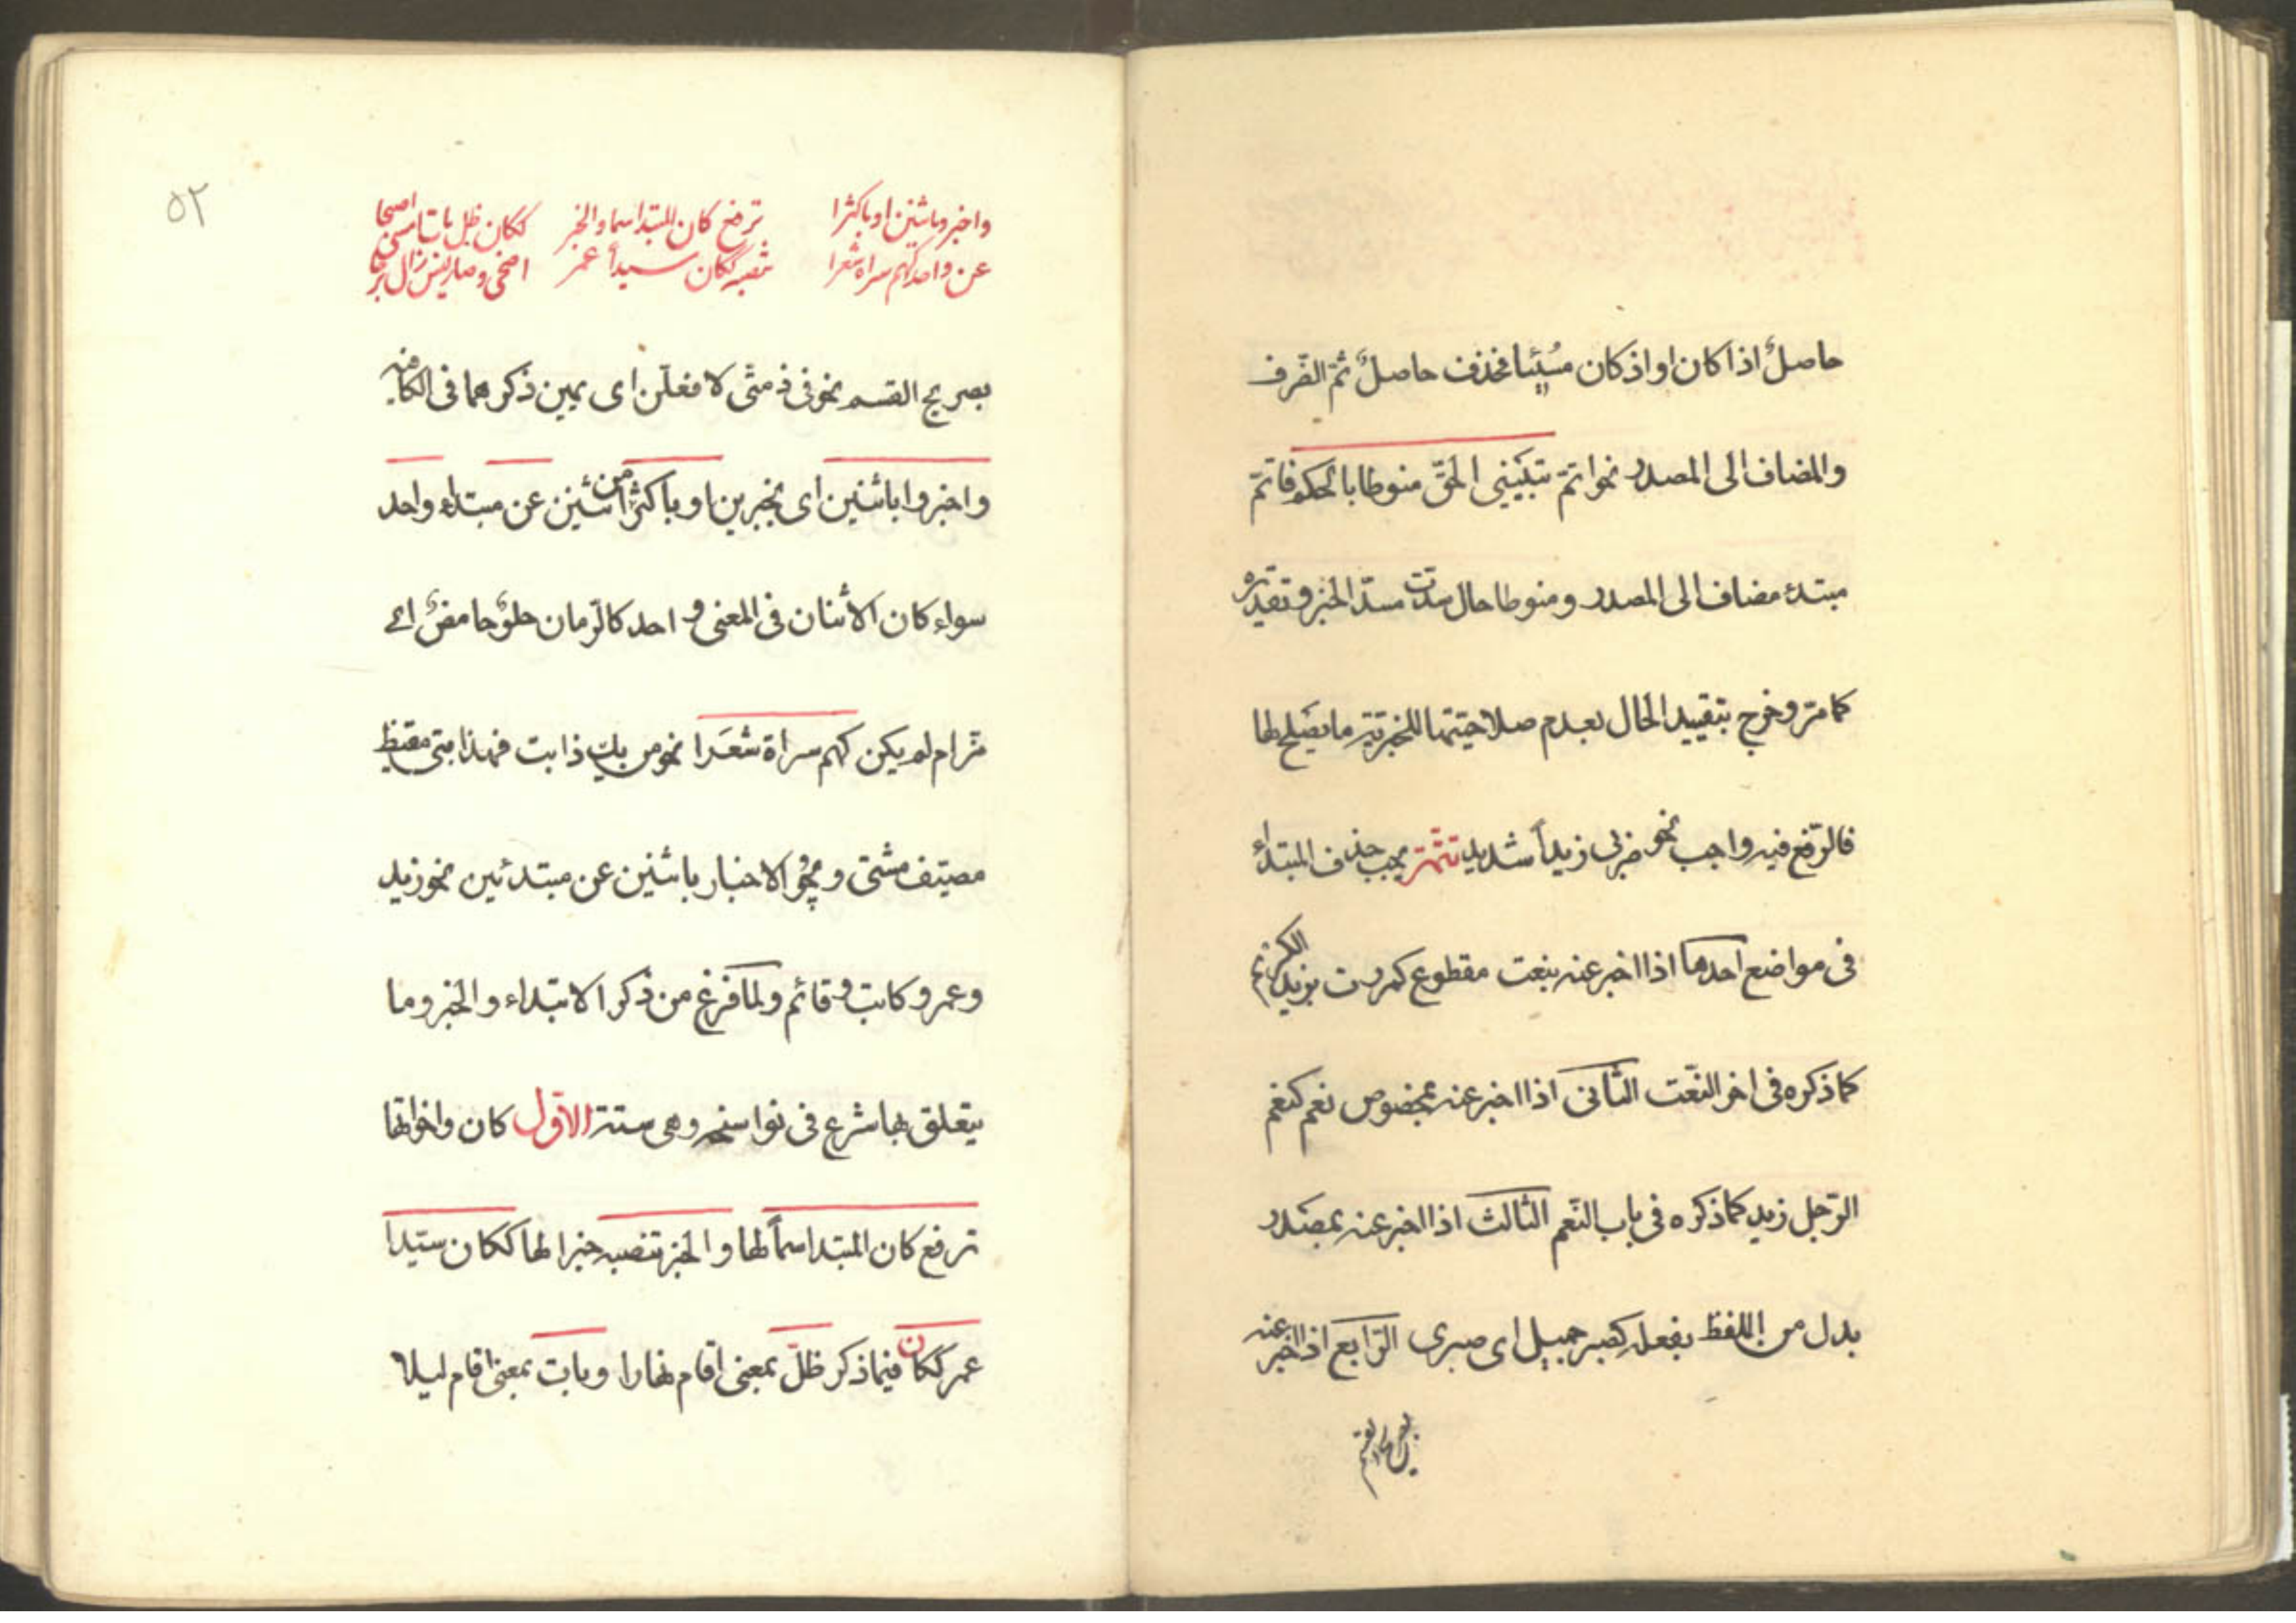 حاصلٌ اذا كان او اذ كان مُسِيْئا فحذف حاصلٌ ثمّ الظّرف
والمضاف الى المصدر نحو اتمّ تبييني الحقّ منوطا بالحكم فاتمّ
مبتدء مضاف الى المصدر ومنوطا حال سدّت مسدّ الخبر وتقديره
كما مرّ وخرج بتقييد الحال بعدم صلاحيّتها للخبريّة ما يصلح لها
فالرّفع فيه واجب نحو ضربى زيداً شديد تتمّة يجب حذف المبتداء
فى مواضع احدها اذا اخبر عنه بنعت مقطوع كمررت بزيد الكريم
كما ذكره فى اخر النّعت الثّانى اذا اخبر عنه بمخصوص نعم كنعم
الرّجل زيد كما ذكره فى باب النّعم الثّالث اذا اخبر عنه بمصدر
بدل من اللفظ بفعله كصبر جميل اى صبرى الرّابع اذا اخبر عنه
بصريح القسم
٥٢
واخبروا باثنين او باكثرا
عن واحد كهم سراة شعرا
ترفع كان المبتدا اسما والخبر
تنصبه ككان سيداً عمر
ككان ظل بات امسى اصبحا
اضحى وصار ليس زال برحا
بصريح القسم نحو فى ذمتى لافعلن اى يمين ذكرهما فى الكافيه
واخبروا باثنين اى بخبرين او باكثرا من اثنين عن مبتداء واحد
سواء كان الاثنان فى المعنى واحد كالرّمان حلوٌ حامضٌ اى
مزّ ام لم يكن كهم سراة شعَرا نحو من يك ذا بت فهذا بتى مقيظ
مصيّف مشتى ويجُوز الاخبار باثنين عن مبتدئين نحو زيد
وعمرو كاتب وقائم ولما فرغ من ذكر الابتداء والخبر وما
يتعلق بها شرع فى نواسخه وهى ستة الاوّل كان واخواتها
ترفع كان المبتدا اسماً لها والخبر تنصبه خبرا لها ككان سيّدا
عمر ككان فيما ذكر ظلّ بمعنى اقام نهارا وبات بمعنى اقام ليلا